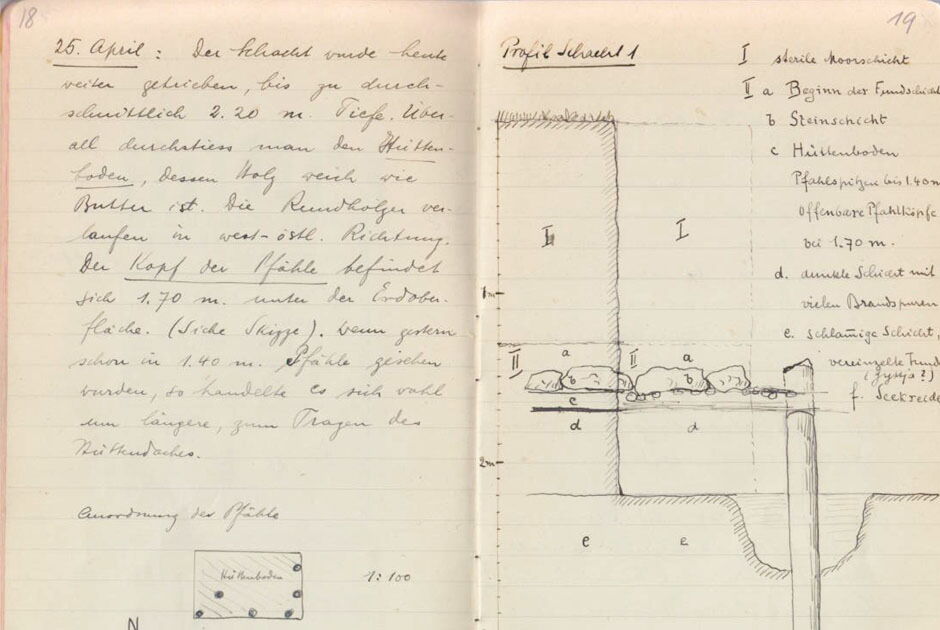 18
25. April: Der Schacht wurde heute
weiter getrieben, bis zu durch-
schnittlich 2.20 m. Tiefe. Über-
all durchstiess man den Hütten-
boden, dessen Holz weich wie
Butter ist. Die Rundhölzer ver-
laufen in west-östl. Richtung.
Der Kopf der Pfähle befindet
sich 1.70 m. unter der Erdober-
fläche. (Siehe Skizze). Wenn gestern
schon in 1.40 m. Pfähle gesehen
wurden, so handelte es sich wohl
um längere, zum Tragen des
Hüttendaches.
Anordnung der Pfähle
Hüttenboden
1:100
N
19
Profil Schacht 1
I sterile Moorschicht
II a Beginn der Fundschicht
b Steinschicht
c Hüttenboden
Pfahlspitzen bis 1.40 m
Offenbare Pfahlköpfe
bei 1.70 m.
d. dunkle Schicht mit
vielen Brandspuren
e. schlammige Schicht,
vereinzelte Fund
(Gyttja?)
f. Seekreide
I
I
1m
II
a
II
a
b
b
c
d
d
2m
e
e